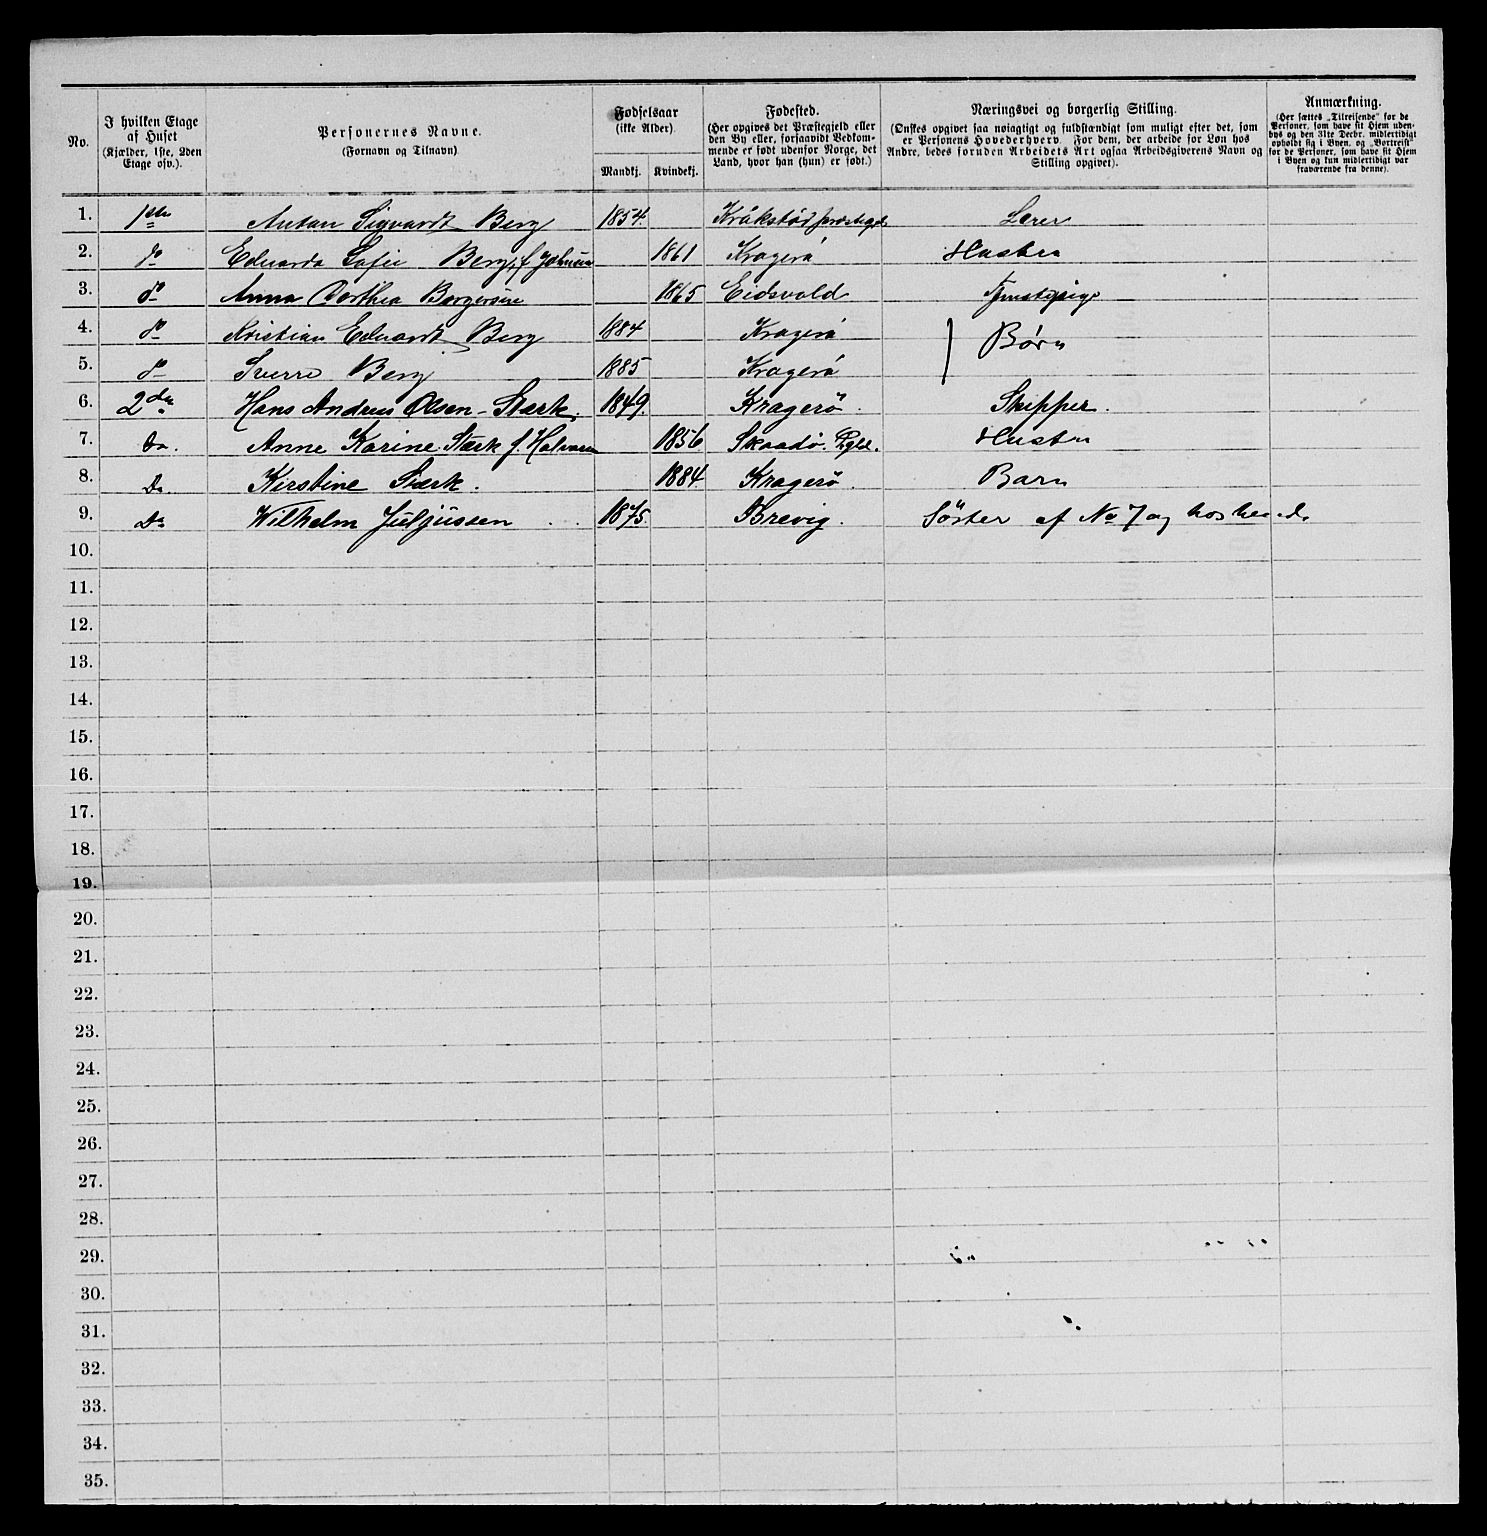 No.
I hvilken Etage af Huset (Kjælder, 1ste, 2den Etage osv.).
Personernes Navne. (Fornavn og Tilnavn)
Fødselsaar (ikke Alder)
Mandkj. Kvindekj.
Fødested. (Her opgives det Præstegjeld eller den By eller, forsaavidt Vedkommende er født udenfor Norge, det Land, hvor han (hun) er født.)
Næringsvei og borgerlig Stilling. (Ønskes opgivet saa nøiagtigt og fuldstændigt som muligt efter det, som er Personens Hovederhverv. For dem, der arbeide for Løn hos Andre, bedes foruden Arbeidets Art ogsaa Arbeidsgiverens Navn og Stilling opgivet).
Anmærkning. (Her sættes „Tilreisende“ for de Personer, som have sit Hjem udenbys og den 31te Decbr. midlertidigt opholdt sig i Byen, og „Bortreist“ for de Personer, som have sit Hjem i Byen og kun midlertidigt var fraværende fra denne).
1. 1ste Anton Sigvardt Berg 1854. Kråkstad præstegd Lærer
2. do Eduarda Sofie Berg, f Johnsen 1861 Kragerö Hustru
3. do Anna Dorthea Borgersen 1865 Eidsvold Tjenstepige
4. do Kristian Eduardt Berg 1884 Kragerö Børn
5. do Sverre Berg 1885 Kragerö
6. 2den Hans Andreas Olsen-Stærk. 1849. Kragerö. Skipper.
7. Do. Anne Karine Stærk f. Halvorsen 1856 Skaadö. Pgld. Hustru
8. Do. Kirstine Stærk. 1884 Kragerö. Barn
9. Do Wilhelm Juljussen 1875. Brevig. Söster af No 7 og hos hende
10.
11.
12.
13.
14.
15.
16.
17.
18.
19.
20.
21.
22.
23.
24.
25.
26.
27.
28.
29.
30.
31.
32.
33.
34.
35.